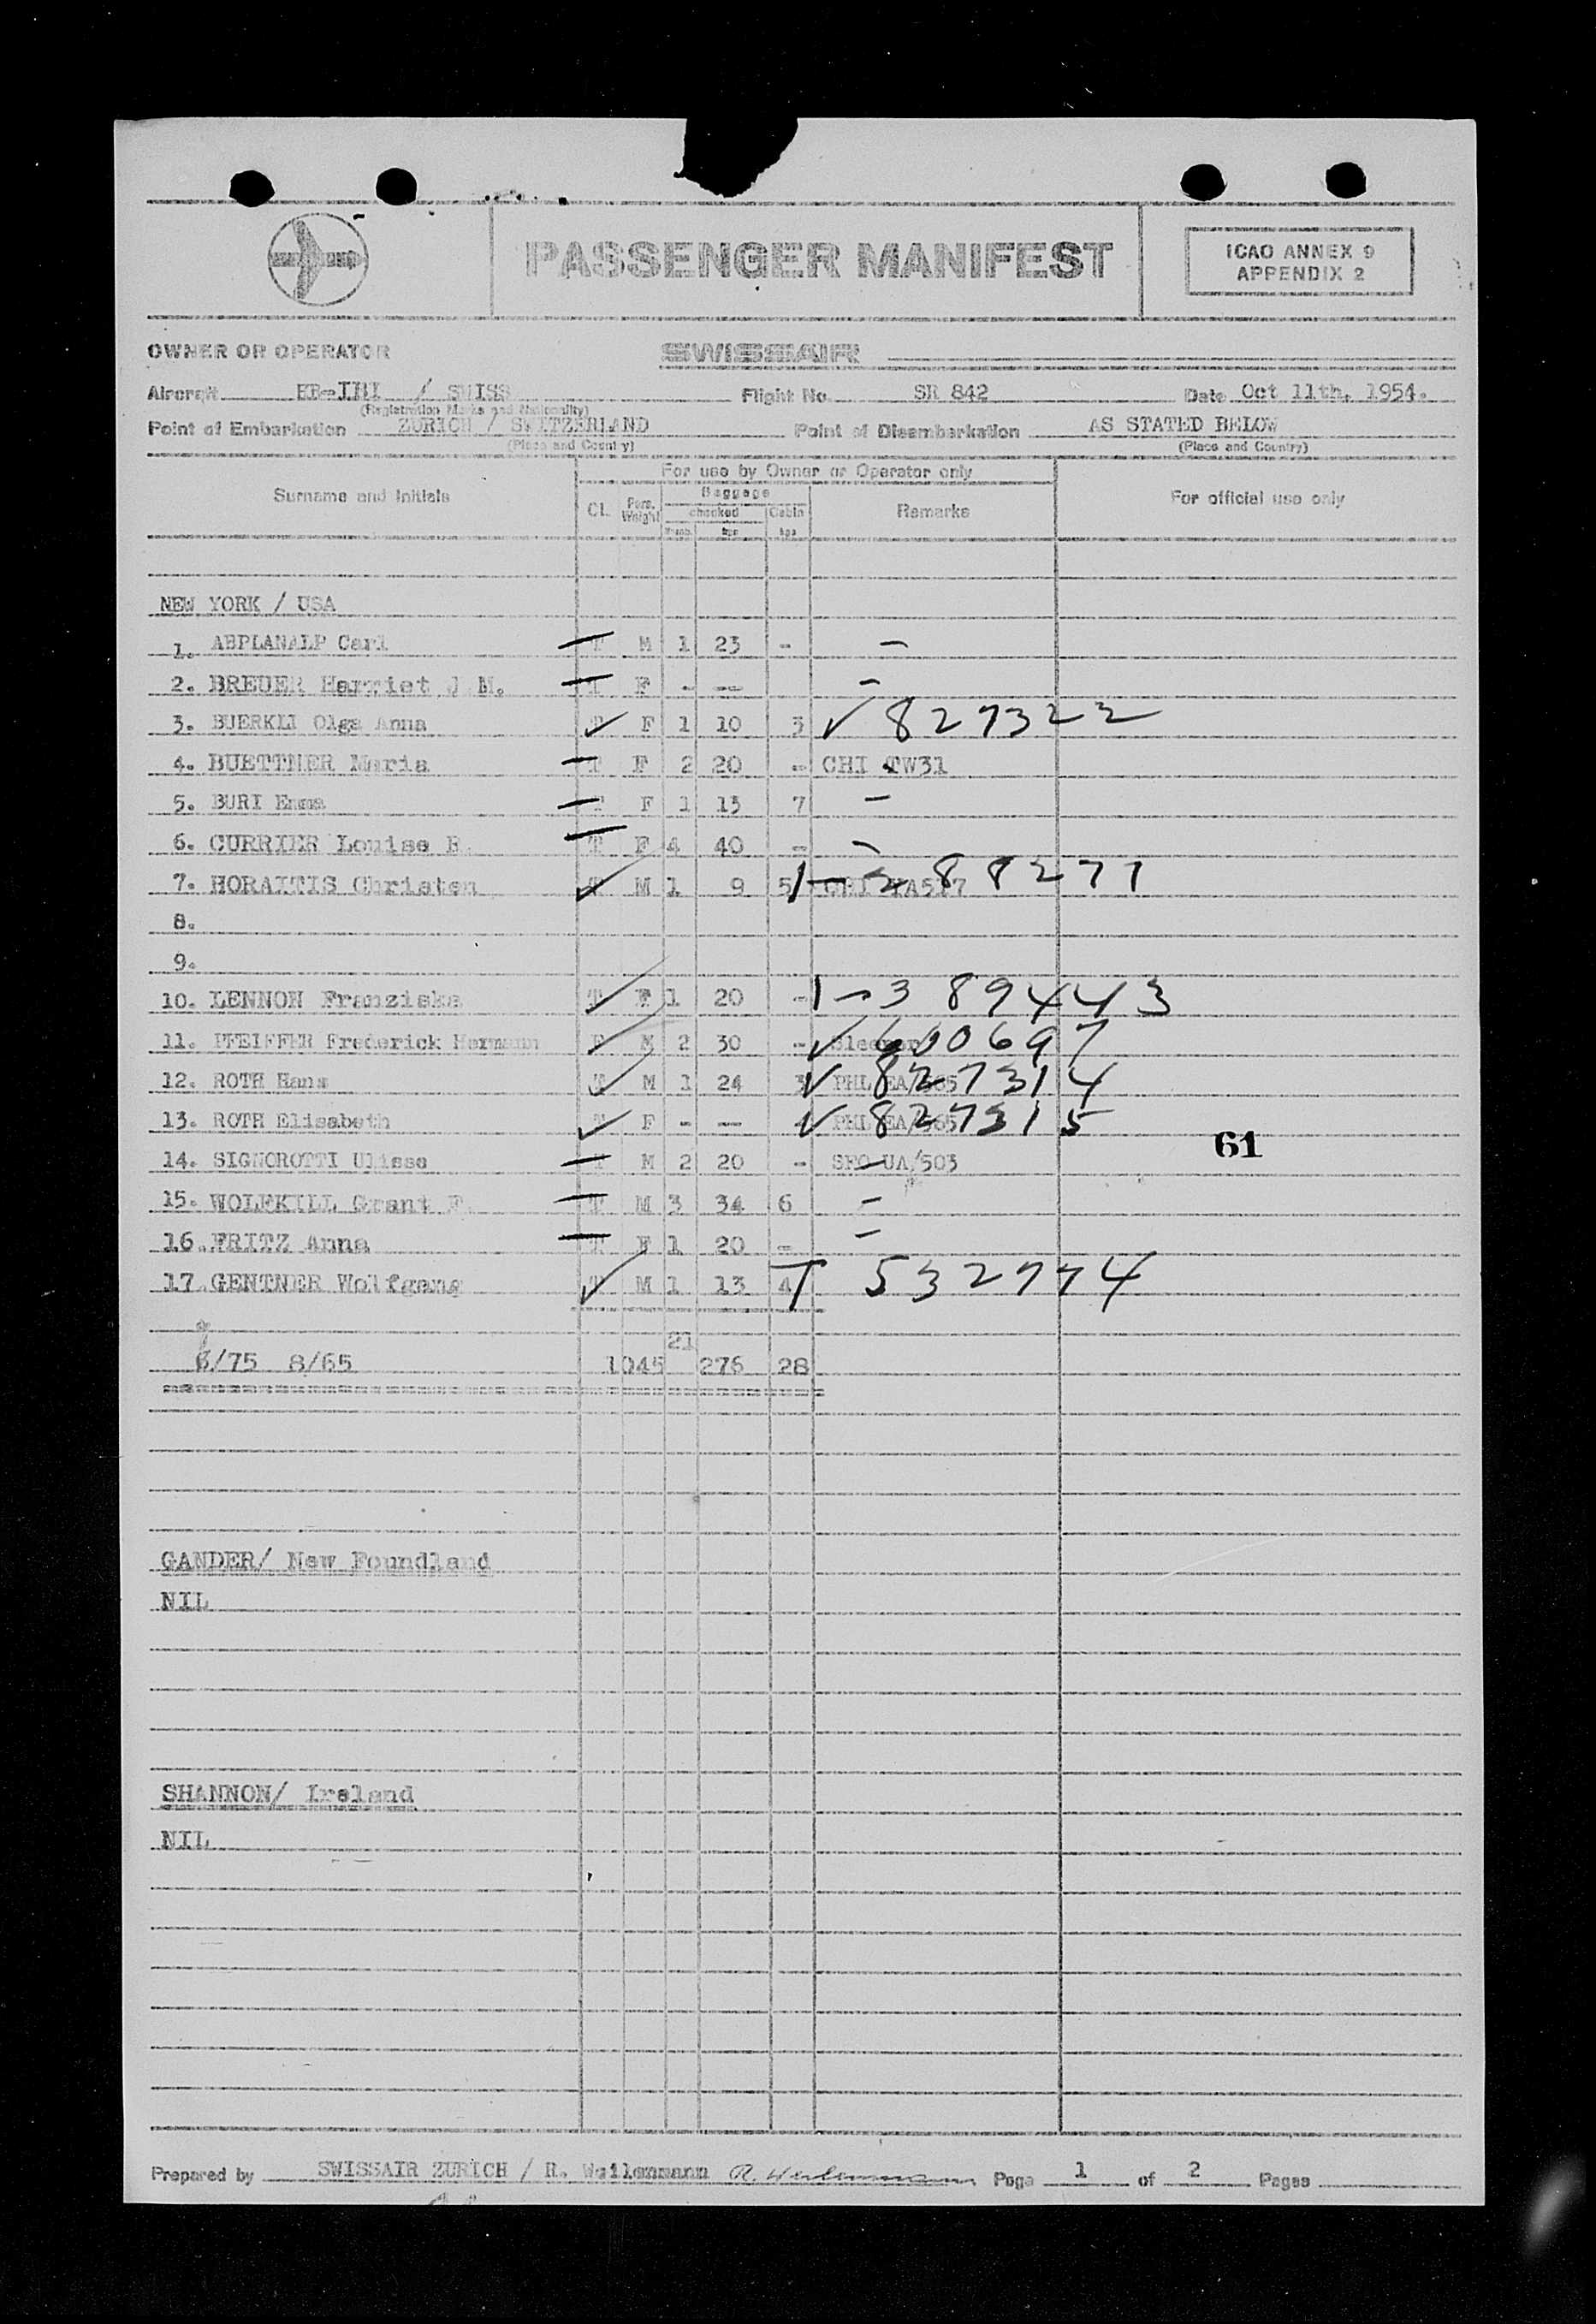 PASSENGER MANIFEST
ICAO ANNEX 9
APPENDIX 2
OWNER OR OPERATOR SWISSAIR
Aircraft / SWISS Flight No. SR 842 Date Oct 11th, 1954.
(Registration Marks and Nationality)
Point of Embarkation ZURICH / SWITZERLAND Point of Disembarkation AS STATED BELOW
(Place and Country) (Place and Country)
For use by Owner or Operator only
Surname and Initials CL. Pers. Weight Baggage Remarks For official use only
checked Cabin
kgs kgs
NEW YORK / USA
1. ABPLANALP Carl T M 1 23 - -
2. BREUER Harriet J M. T F - -- -
3. BUERKLI Olga Anna T F 1 10 3 ✓ 827322
4. BUETTNER Maria T F 2 20 - CHI TW31
5. BURI Emma T F 1 13 7 -
6. CURRIER Louise B. T F 4 40 - -
7. HORAITIS Christen T M 1 9 5 1-288277
8.
9.
10. LENNON Franziska T F 1 20 - 1-389443
11. PFEIFFER Frederick Hermann M 2 30 - ✓ 600697
12. ROTH Hans T M 1 24 3 ✓ PHL EA/565 827314
13. ROTH Elisabeth T F - -- - ✓ PHL EA/565 827315
61
14. SIGNOROTTI Ulisse T M 2 20 - SFO UA/503
15. WOLFKILL Grant F. T M 3 34 6 -
16. FRITZ Anna T F 1 20 - -
17. GENTNER Wolfgang T M 1 13 4 T 532774
21
/75 8/65 1045 276 28
GANDER/ New Foundland
NIL
SHANNON/ Ireland
NIL
Prepared by SWISSAIR ZURICH / R. Weilenmann R. Weilenmann Page 1 of 2 Pages